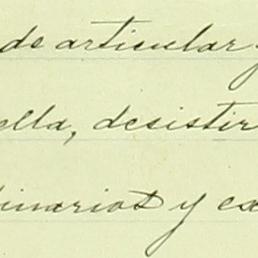 de articular y
ella, desistir
dinarios y ex